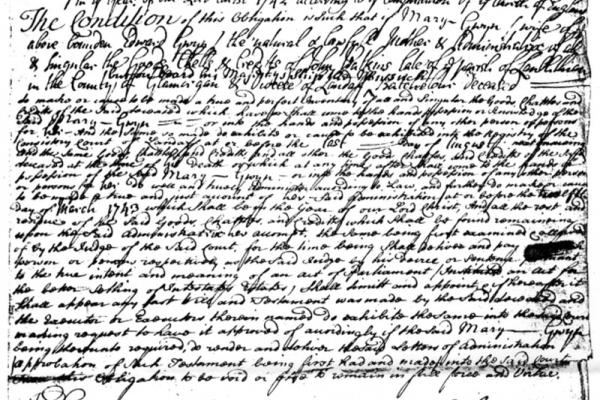 in ye year of our Lord 1742 according
The Condition of this Obligation is Such that if Mary Gwyn wife of
above bounden Edward Gwyn the natural & lawfull Mother & Administratrix of all
& Singular the Goods Chells & Credits of John Watkins late of ye Parish of
on board his Majestys Ship
in the County of Glamorgan & Diocese of Landaff Batchelour Deceased
do make or cause to be made a true and perfect Inventory of all and Singular the Goods Chattles and
Credits of the Said Deceased which have or shall come to the hands possession or knowledge of the
Said Mary Gwyn or into the hands and possession of any other person or persons
for her And the same so made do exhibite or cause to be exhibited into the Registry of the
Consistory Court of Landaff at or before the last Day of August next ensuing
And the same Goods Chattles and Credits and all other the Good Chattles and Credits of the Said
deceased at the time of his Death which at any time after shall come to the hands or
possession of the said Mary Gwyn or into the hands and possession of any other person
or persons for her do well and truely administer according to Law, and further do make or cause
to be made a true and just account of her said Administration at or before the
day of March 1743 which Shall be in the year of our Lord Christ, And all the rest and
residue of the said Goods, Chattles, and Credits which Shall be found remaining
upon the Said administratrix her accompt the Same being first examined & allowed
of by the Judge of the Said Court, for the time being Shall deliver and pay
person or persons respectively as the said Judge by his Decree or Sentence
to the true intent and meaning of an act of Parliament Intituled an Act for
the better Setling of Intestates Estates, Shall limitt and appoint; if thereafter it
Shall appear any last Will and Testament was made by the Said deceased and
the Executor or Executors therein named do exhibite the same into the said Court
making request to have it approved of accordingly if the said Mary Gwyn
being thereunto required, do render and deliver the said Letters of administration
approbation of Such Testament being first had and made into the said Court
Then this Obligation to be void or else to remain in full force and Virtue.